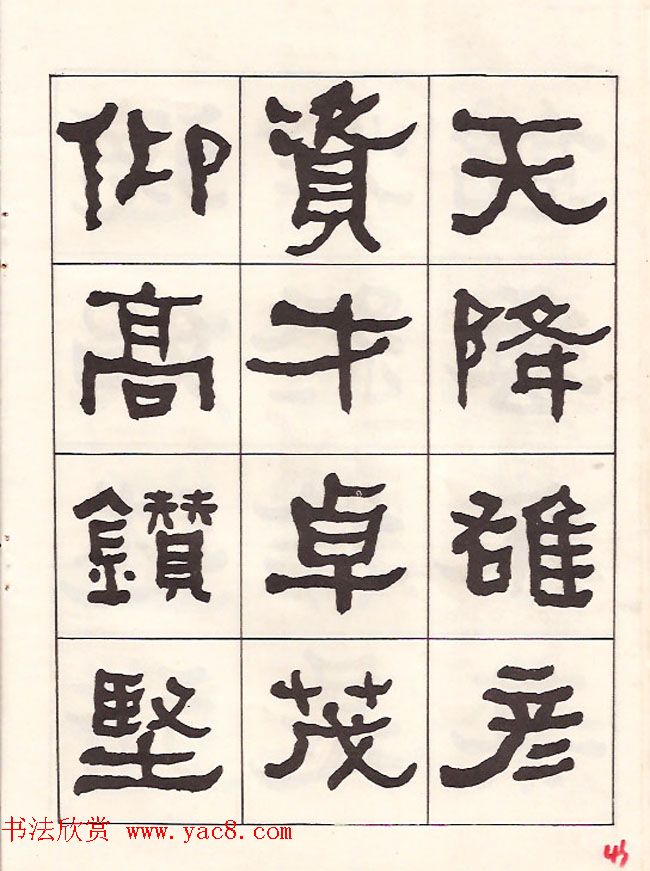 天降雄彦
資才卓茂
仰高鑽堅
书法欣赏 www.yac8.com